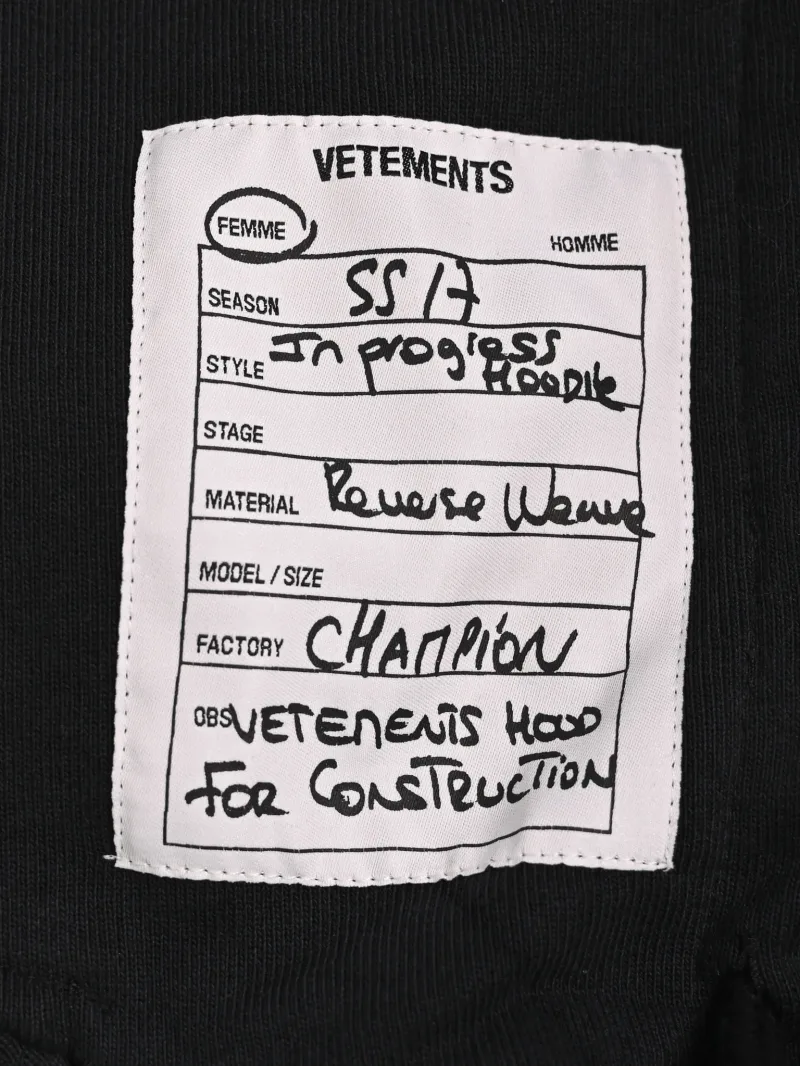 VETEMENTS
FEMME HOMME
SEASON SS 17
STYLE In progress
HOODIE
STAGE
MATERIAL Reverse Weave
MODEL / SIZE
FACTORY CHAMPION
OBS VETEMENTS HOOD
FOR CONSTRUCTION